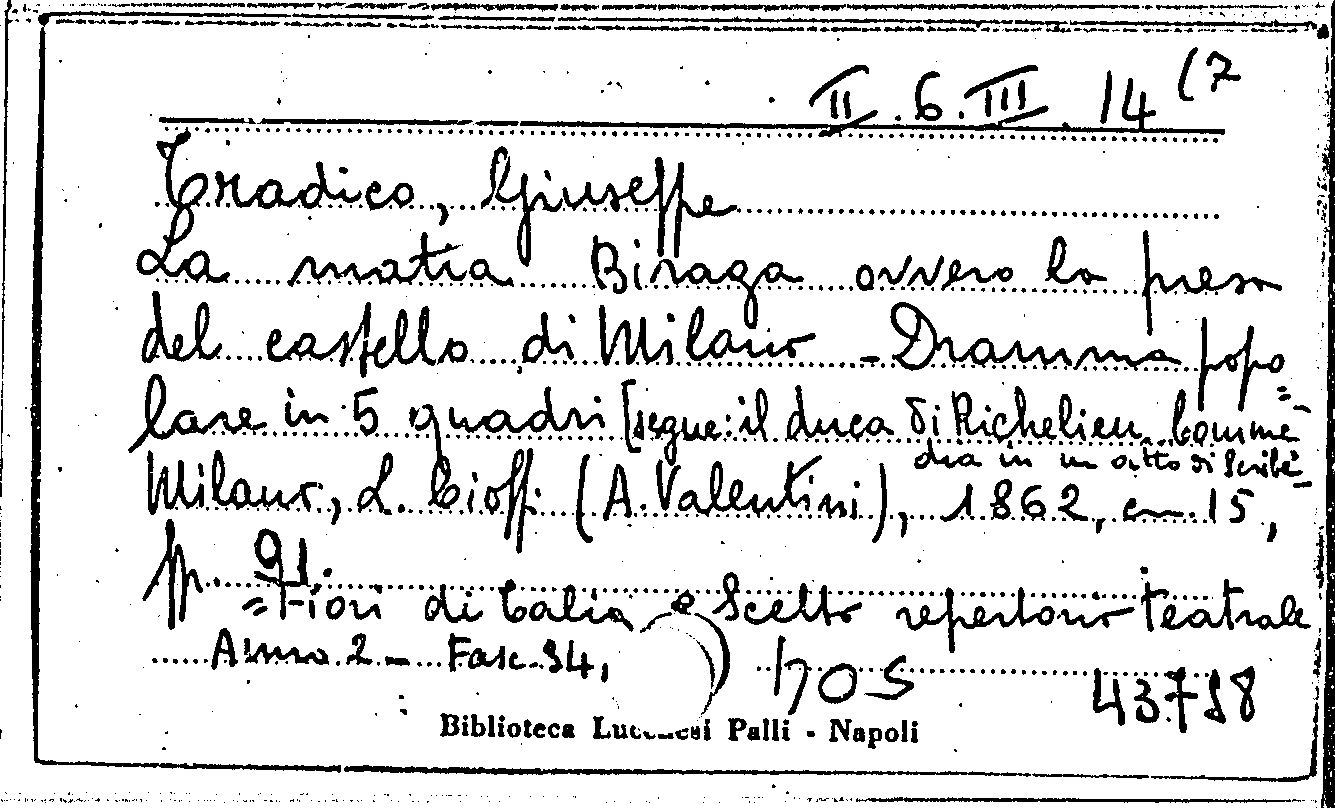 II.6.III.14(7
Tradico, Giuseppe
La matia Biraga ovvero la presa
del castello di Milano - Dramma popo=
lare in 5 quadri [segue: il duca di Richelieu. Comme-
dia in un atto di Scribe-
Milano, L. Cioffi (A. Valentini), 1862, cm. 15,
pp. 91.
= Fiori di Talia e Scelto repertorio teatrale
Anno 2 - Fasc. 34,
Biblioteca Lucchesi Palli - Napoli